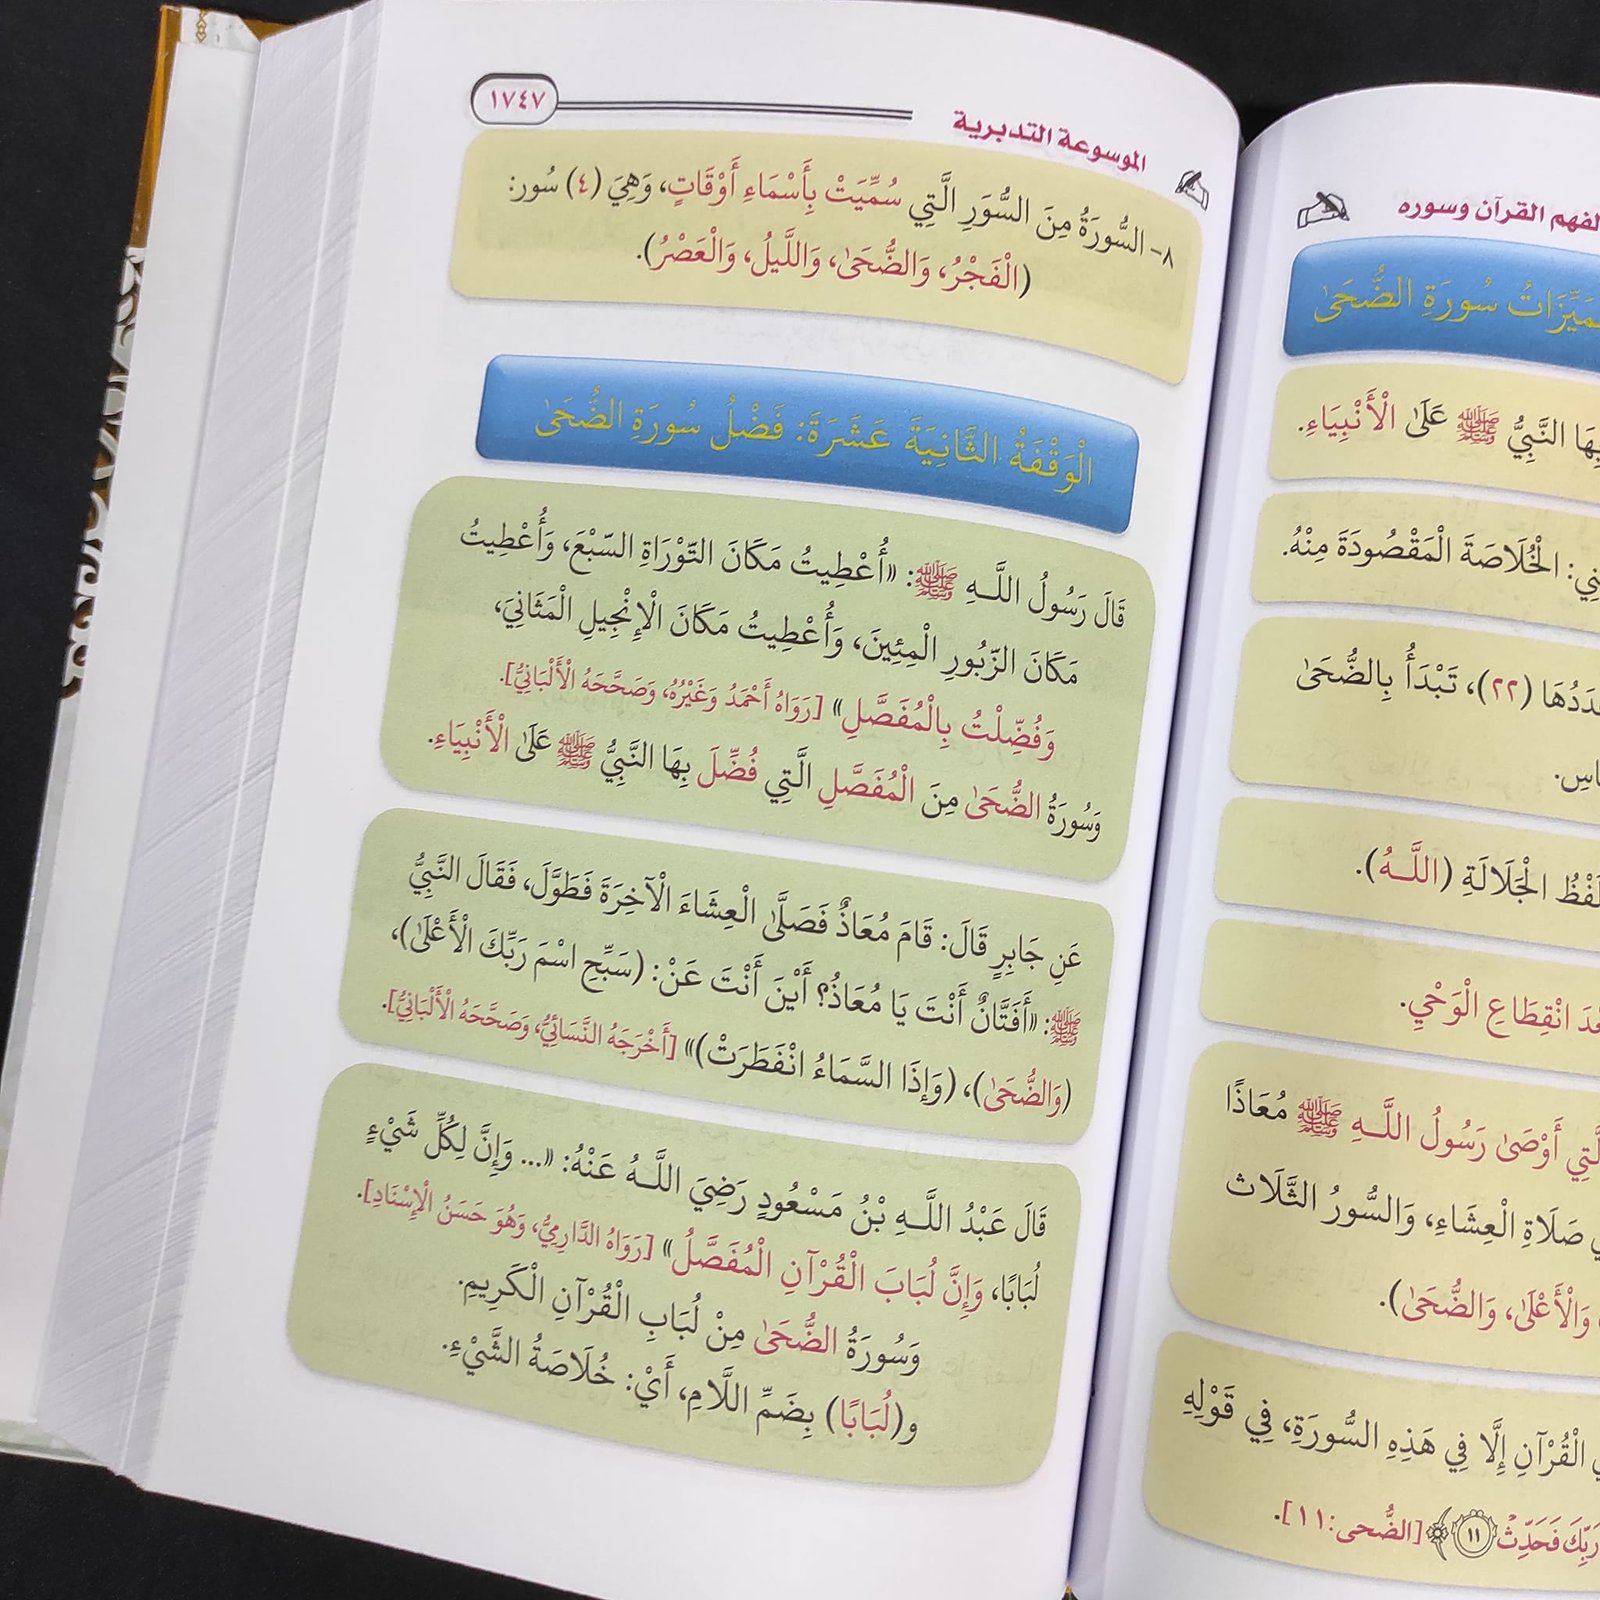 لفهم القرآن وسوره
مَيِّزَاتُ سُورَةِ الضُّحَىٰ
بِهَا النَّبِيُّ ﷺ عَلَىٰ الْأَنْبِيَاءِ.
الْخُلَاصَةَ الْمَقْصُودَةَ مِنْهُ.
(٢٢)، تَبْدَأُ بِالضُّحَىٰ
الْجَلَالَةِ (اللَّـهُ).
انْقِطَاعِ الْوَحْيِ.
أَوْصَىٰ رَسُولُ اللَّـهِ ﷺ مُعَاذًا
صَلَاةِ الْعِشَاءِ، وَالسُّورُ الثَّلَاث
وَالْأَعْلَىٰ، وَالضُّحَىٰ).
الْقُرْآنِ إِلَّا فِي هَذِهِ السُّورَةِ، فِي قَوْلِهِ
رَبِّكَ فَحَدِّثْ ١١﴾ [الضُّحى:١١].
الموسوعة التدبرية
١٧٤٧
٨- السُّورَةُ مِنَ السُّوَرِ الَّتِي سُمِّيَتْ بِأَسْمَاءِ أَوْقَاتٍ، وَهِيَ (٤) سُور:
(الْفَجْرُ، وَالضُّحَىٰ، وَاللَّيلُ، وَالْعَصْرُ).
الْوَقْفَةُ الثَّانِيَةَ عَشَرَةَ: فَضْلُ سُورَةِ الضُّحَىٰ
قَالَ رَسُولُ اللَّـهِ ﷺ: «أُعْطِيتُ مَكَانَ التّوْرَاةِ السّبْعَ، وَأُعْطِيتُ
مَكَانَ الزّبُورِ الْمِئِينَ، وَأُعْطِيتُ مَكَانَ الْإِنْجِيلِ الْمَثَانِيَ،
وَفُضِّلْتُ بِالْمُفَصَّلِ» [رَوَاهُ أَحْمَدُ وَغَيْرُهُ، وَصَحَّحَهُ الْأَلْبَانِيُّ].
وَسُورَةُ الضُّحَىٰ مِنَ الْمُفَصَّلِ الَّتِي فُضِّلَ بِهَا النَّبِيُّ ﷺ عَلَىٰ الْأَنْبِيَاءِ.
عَنِ جَابِرٍ قَالَ: قَامَ مُعَاذٌ فَصَلَّىٰ الْعِشَاءَ الْآخِرَةَ فَطَوَّلَ، فَقَالَ النَّبِيُّ
ﷺ: «أَفَتَّانٌ أَنْتَ يَا مُعَاذُ؟ أَيْنَ أَنْتَ عَنْ: (سَبِّحِ اسْمَ رَبِّكَ الْأَعْلَىٰ)،
(وَالضُّحَىٰ)، (وَإِذَا السَّمَاءُ انْفَطَرَتْ)» [أَخْرَجَهُ النَّسَائِيُّ، وَصَحَّحَهُ الْأَلْبَانِيُّ].
قَالَ عَبْدُ اللَّـهِ بْنُ مَسْعُودٍ رَضِيَ اللَّـهُ عَنْهُ: «... وَإِنَّ لِكُلِّ شَيْءٍ
لُبَابًا، وَإِنَّ لُبَابَ الْقُرْآنِ الْمُفَصَّلُ» [رَوَاهُ الدَّارِمِيُّ، وَهُوَ حَسَنُ الْإِسْنَادِ].
وَسُورَةُ الضُّحَىٰ مِنْ لُبَابِ الْقُرْآنِ الْكَرِيمِ.
و(لُبَابًا) بِضَمِّ اللَّامِ، أَيْ: خُلَاصَةُ الشَّيْءِ.